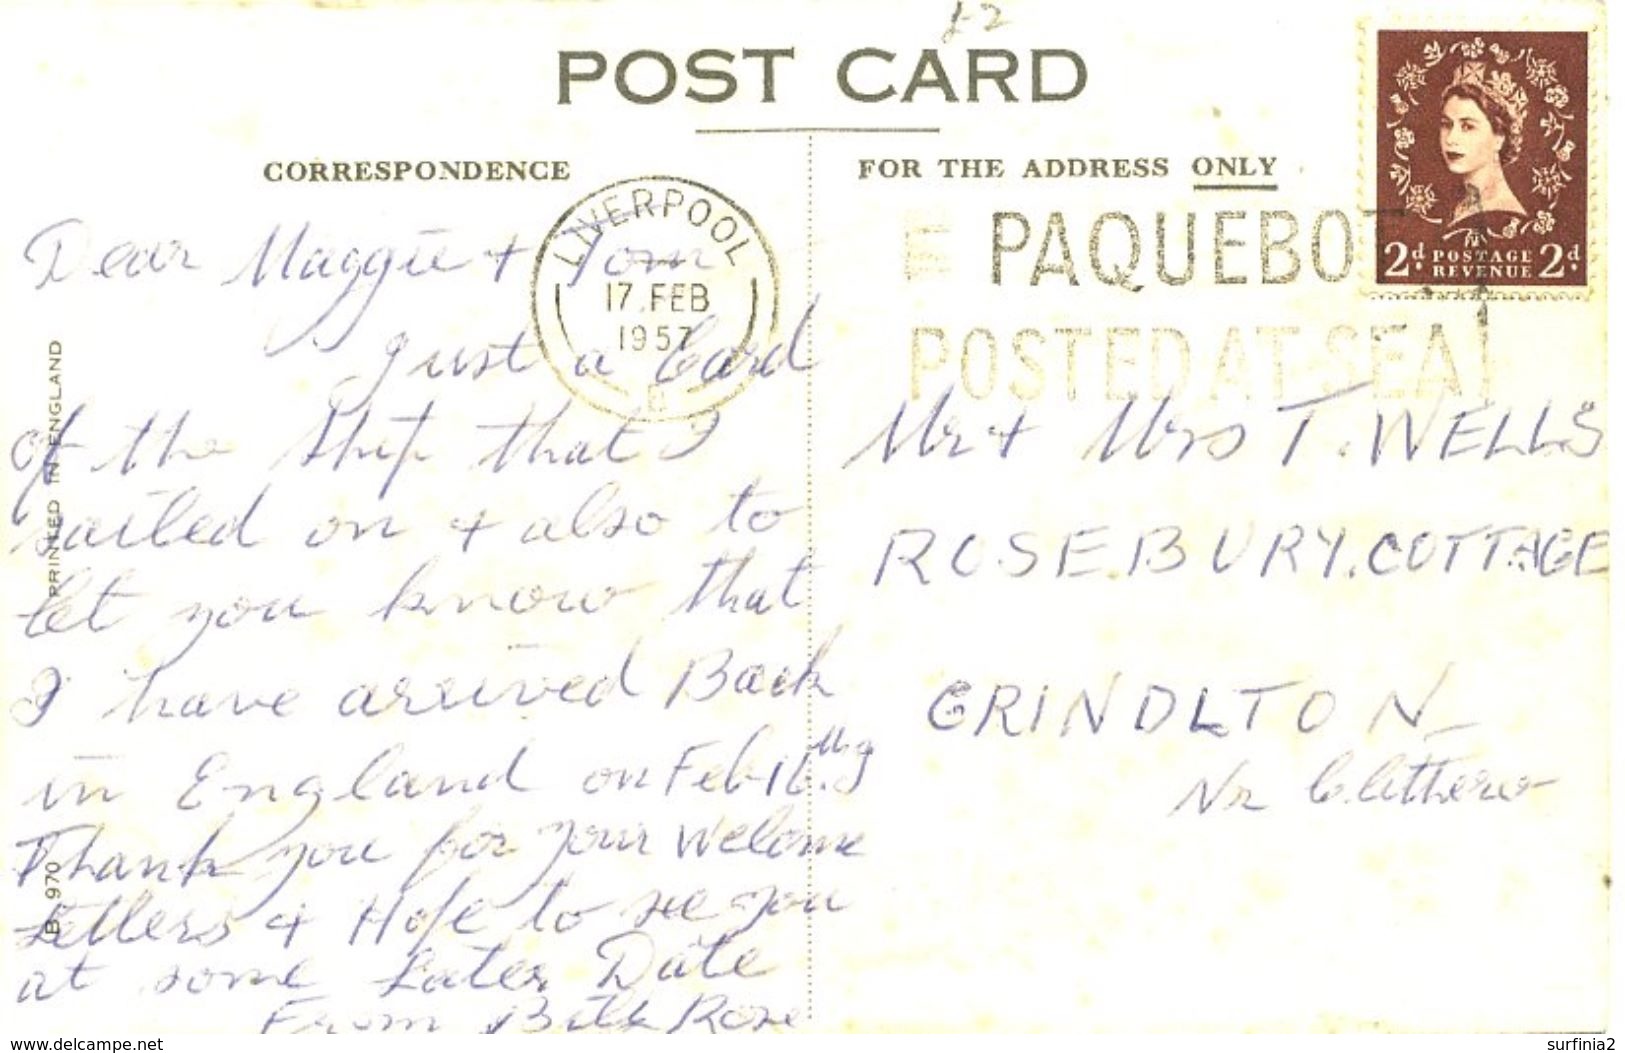 £2
POST CARD
CORRESPONDENCE
FOR THE ADDRESS ONLY
LIVERPOOL
17 FEB
1957
PAQUEBOT
POSTED AT SEA
2d POSTAGE REVENUE 2d
Dear Maggie + Tom
Just a Card
of the Ship that I
sailed on + also to
let you know that
I have arrived Back
in England on Feb 16th
Thank you for your Welcome
Letters + Hope to see you
at some Later Date
From Bill Rose
PRINTED IN ENGLAND
B 970
Mr + Mrs T. WELLS
ROSEBURY. COTTAGE
GRINDLTON
Nr Clitheroe
www.delcampe.net
surfinia2